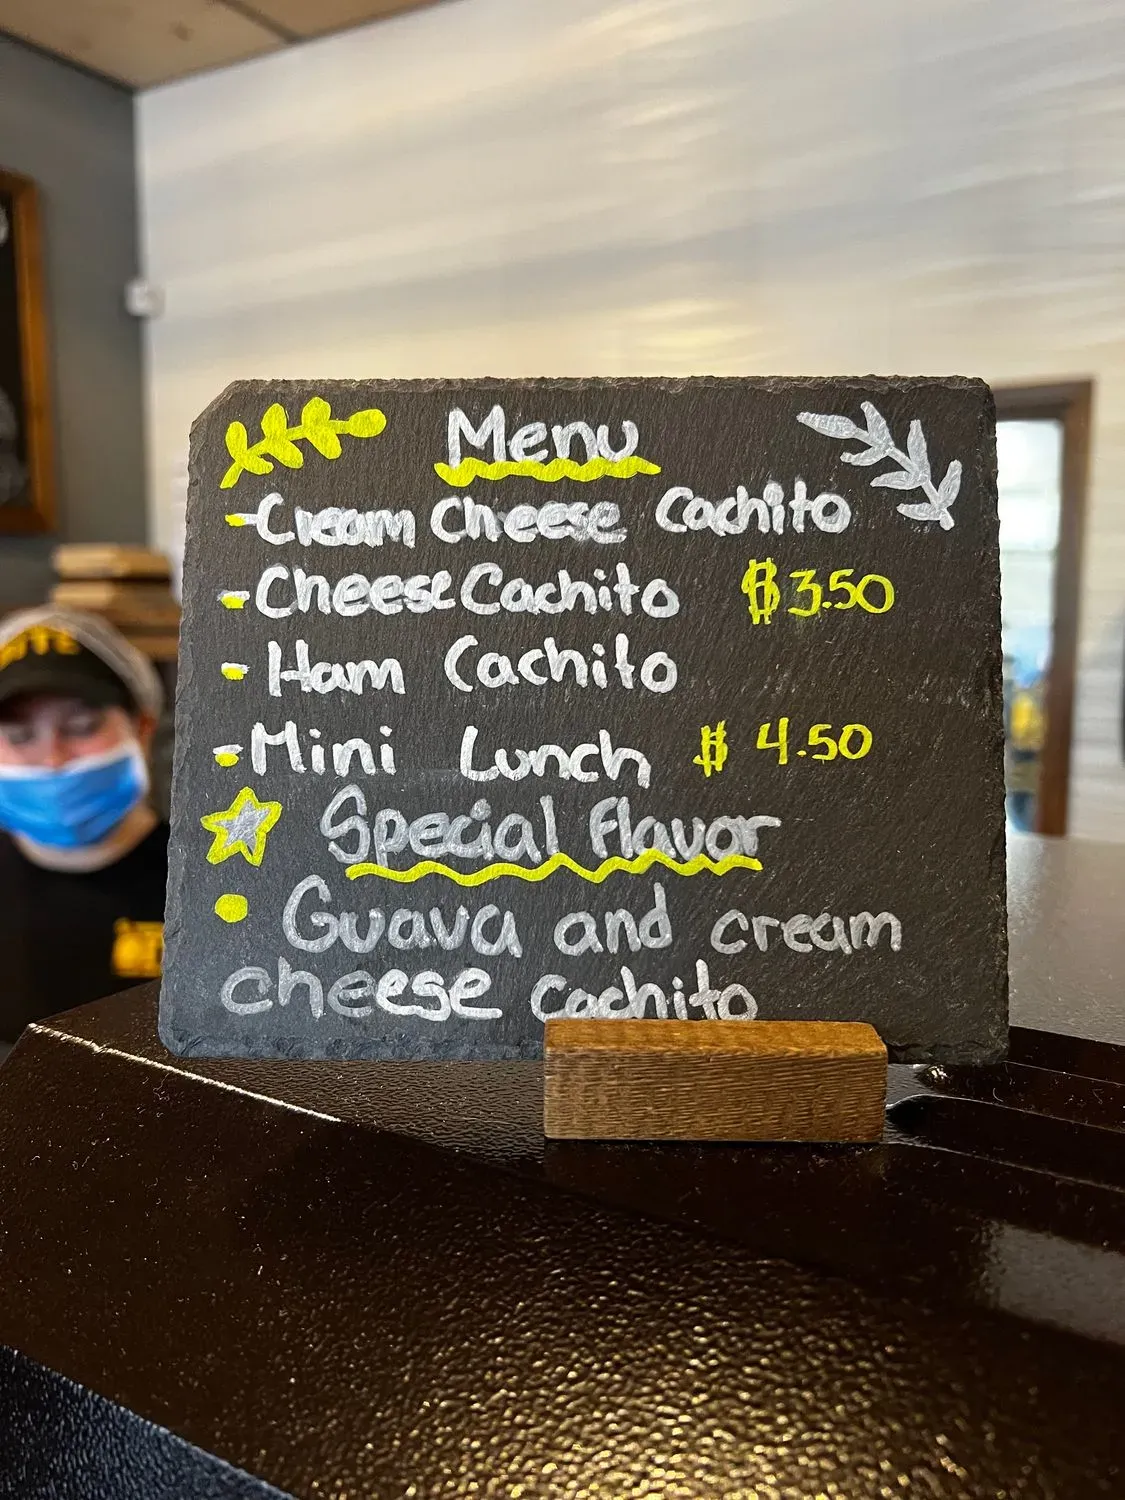 Menu
- Cream Cheese Cachito
- Cheese Cachito $3.50
- Ham Cachito
- Mini Lunch $ 4.50
Special Flavor
Guava and cream
cheese Cachito